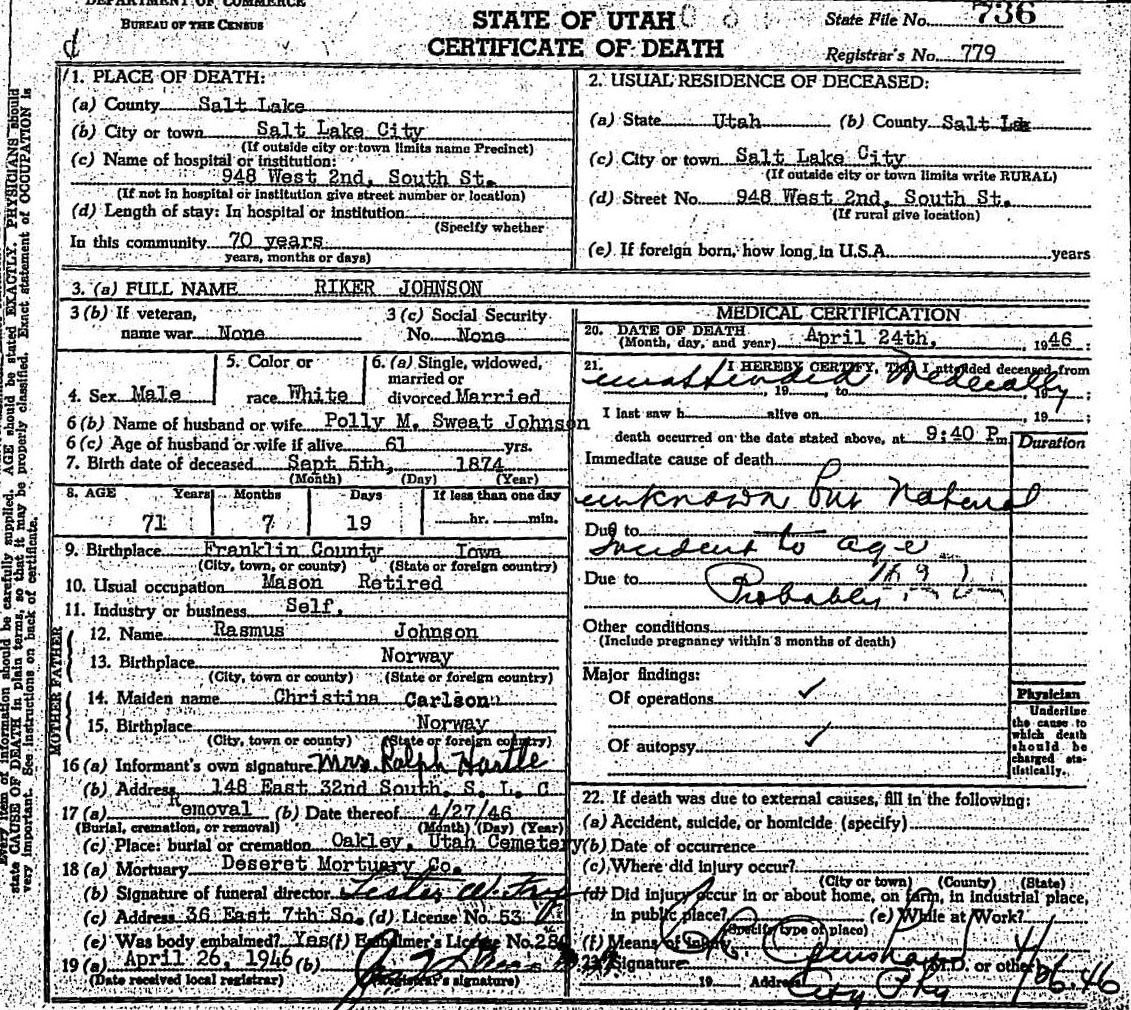 DEPARTMENT OF COMMERCE
BUREAU OF THE CENSUS
STATE OF UTAH
CERTIFICATE OF DEATH
State File No. 736
Registrar's No. 779
Every item of information should be carefully supplied. AGE should be stated EXACTLY. PHYSICIANS should
state CAUSE OF DEATH in plain terms, so that it may be properly classified. Exact statement of OCCUPATION is
very important. See instructions on back of certificate.
1. PLACE OF DEATH:
(a) County Salt Lake
(b) City or town Salt Lake City
(If outside city or town limits name Precinct)
(c) Name of hospital or institution:
948 West 2nd, South St.
(If not in hospital or institution give street number or location)
(d) Length of stay: In hospital or institution
(Specify whether
In this community 70 years
years, months or days)
2. USUAL RESIDENCE OF DECEASED:
(a) State Utah (b) County Salt Lak
(c) City or town Salt Lake City
(If outside city or town limits write RURAL)
(d) Street No. 948 West 2nd, South St.
(If rural give location)
(e) If foreign born, how long in U.S.A. years
3. (a) FULL NAME RIKER JOHNSON
3 (b) If veteran, name war None
3 (c) Social Security No. None
4. Sex Male
5. Color or race White
6. (a) Single, widowed, married or divorced Married
6 (b) Name of husband or wife Polly M. Sweat Johnson
6 (c) Age of husband or wife if alive 61 yrs.
7. Birth date of deceased Sept 5th, 1874
(Month) (Day) (Year)
8. AGE Years Months Days If less than one day
71 7 19 hr. min.
9. Birthplace Franklin County Iowa
(City, town, or county) (State or foreign country)
10. Usual occupation Mason Retired
11. Industry or business Self.
FATHER
12. Name Rasmus Johnson
13. Birthplace Norway
(City, town or county) (State or foreign country)
MOTHER
14. Maiden name Christina Carlson
15. Birthplace Norway
(City, town or county) (State or foreign country)
16 (a) Informant's own signature Mrs. Ralph Hartle
(b) Address 148 East 32nd South, S. L. C
17 (a) Removal (b) Date thereof 4/27/46
(Burial, cremation, or removal) (Month) (Day) (Year)
(c) Place: burial or cremation Oakley, Utah Cemetery
18 (a) Mortuary Deseret Mortuary Co.
(b) Signature of funeral director
(c) Address 36 East 7th So. (d) License No. 53
(e) Was body embalmed? Yes (f) Embalmer's License No.
19 (a) April 26, 1946 (b)
(Date received local registrar) (Registrar's signature)
MEDICAL CERTIFICATION
20. DATE OF DEATH
(Month, day, and year) April 24th, 1946
21. I HEREBY CERTIFY, That I attended deceased from
unattended Medically
, 19 , to , 19 ;
I last saw h alive on , 19 ;
death occurred on the date stated above, at 9:40 P m
Duration
Immediate cause of death
unknown but Natural
Due to
Incident to age
Due to
Probably
Other conditions
(Include pregnancy within 3 months of death)
Major findings:
Of operations ✓
Of autopsy ✓
Physician
Underline
the cause to
which death
should be
charged sta-
tistically.
22. If death was due to external causes, fill in the following:
(a) Accident, suicide, or homicide (specify)
(b) Date of occurrence
(c) Where did injury occur?
(City or town) (County) (State)
(d) Did injury occur in or about home, on farm, in industrial place,
in public place? (e) While at Work?
(Specify type of place)
(f) Means of injury
23. Signature (M.D. or other)
19 Address City Phy 4/26.46